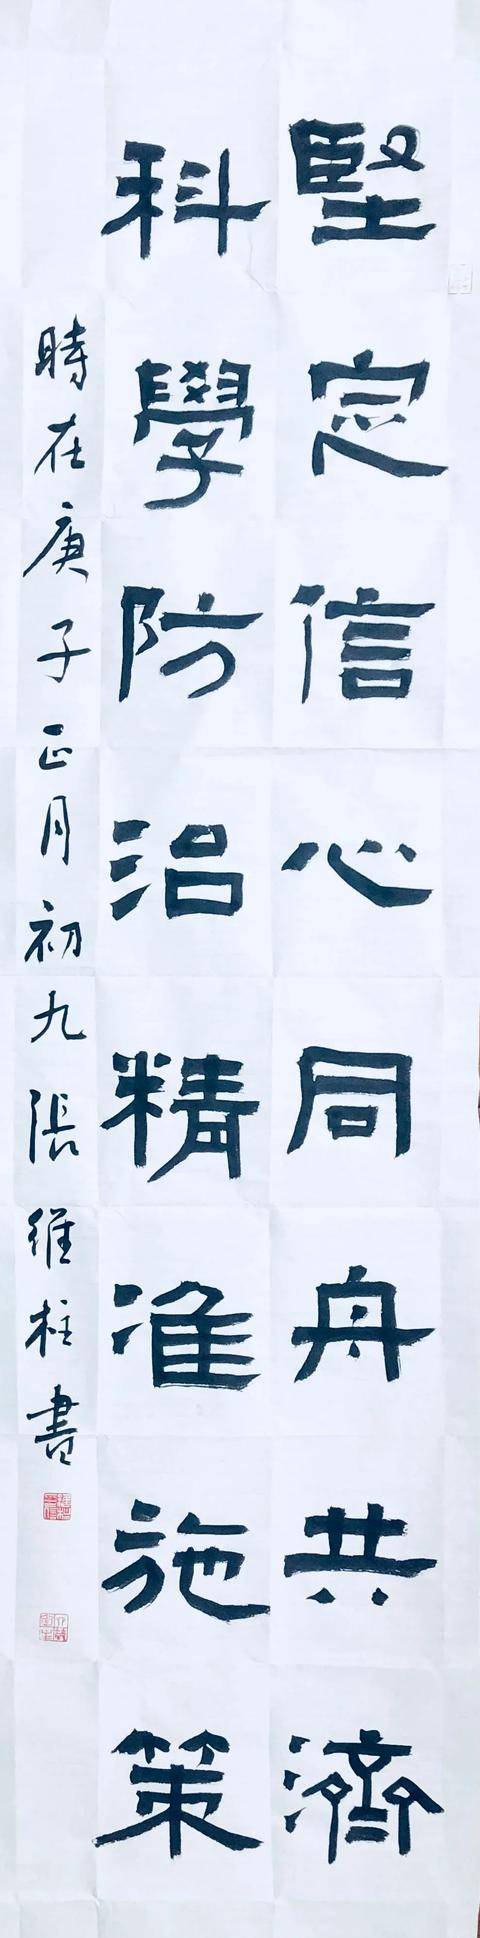 堅定信心同舟共濟
科學防治精准施策
時在庚子正月初九張維柱書